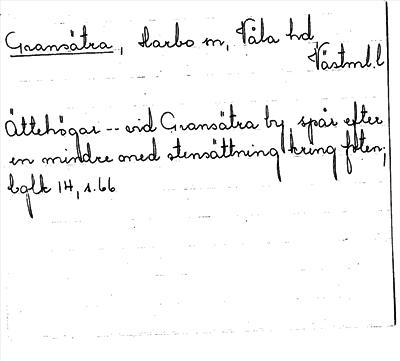 Gransätra, Harbo sn, Våla hd,
Västml.l
Ättehögar -- vid Gransätra by, spår efter
en mindre med stensättning kring foten;
bglk 14, s. 66